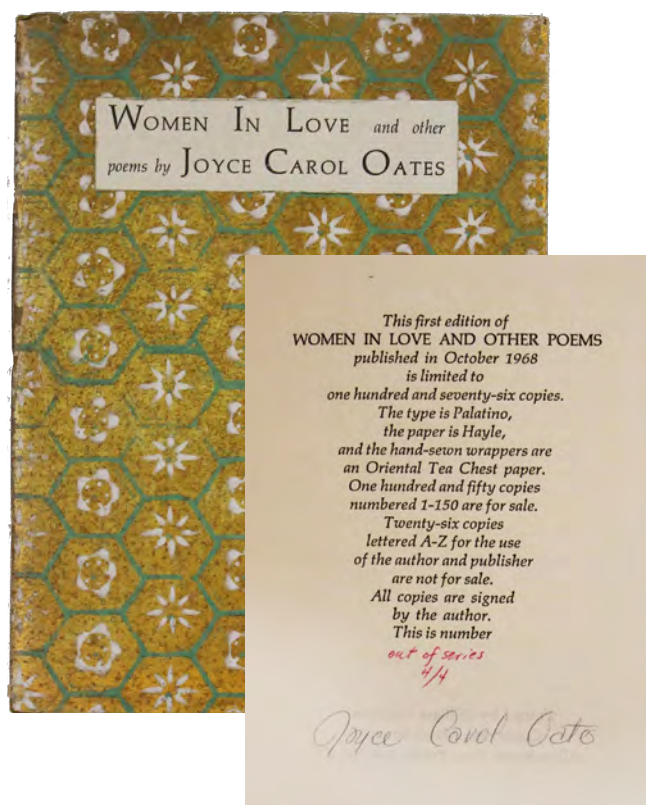 WOMEN IN LOVE and other
poems by JOYCE CAROL OATES
This first edition of
WOMEN IN LOVE AND OTHER POEMS
published in October 1968
is limited to
one hundred and seventy-six copies.
The type is Palatino,
the paper is Hayle,
and the hand-sewn wrappers are
an Oriental Tea Chest paper.
One hundred and fifty copies
numbered 1-150 are for sale.
Twenty-six copies
lettered A-Z for the use
of the author and publisher
are not for sale.
All copies are signed
by the author.
This is number
out of series
4/4
Joyce Carol Oates